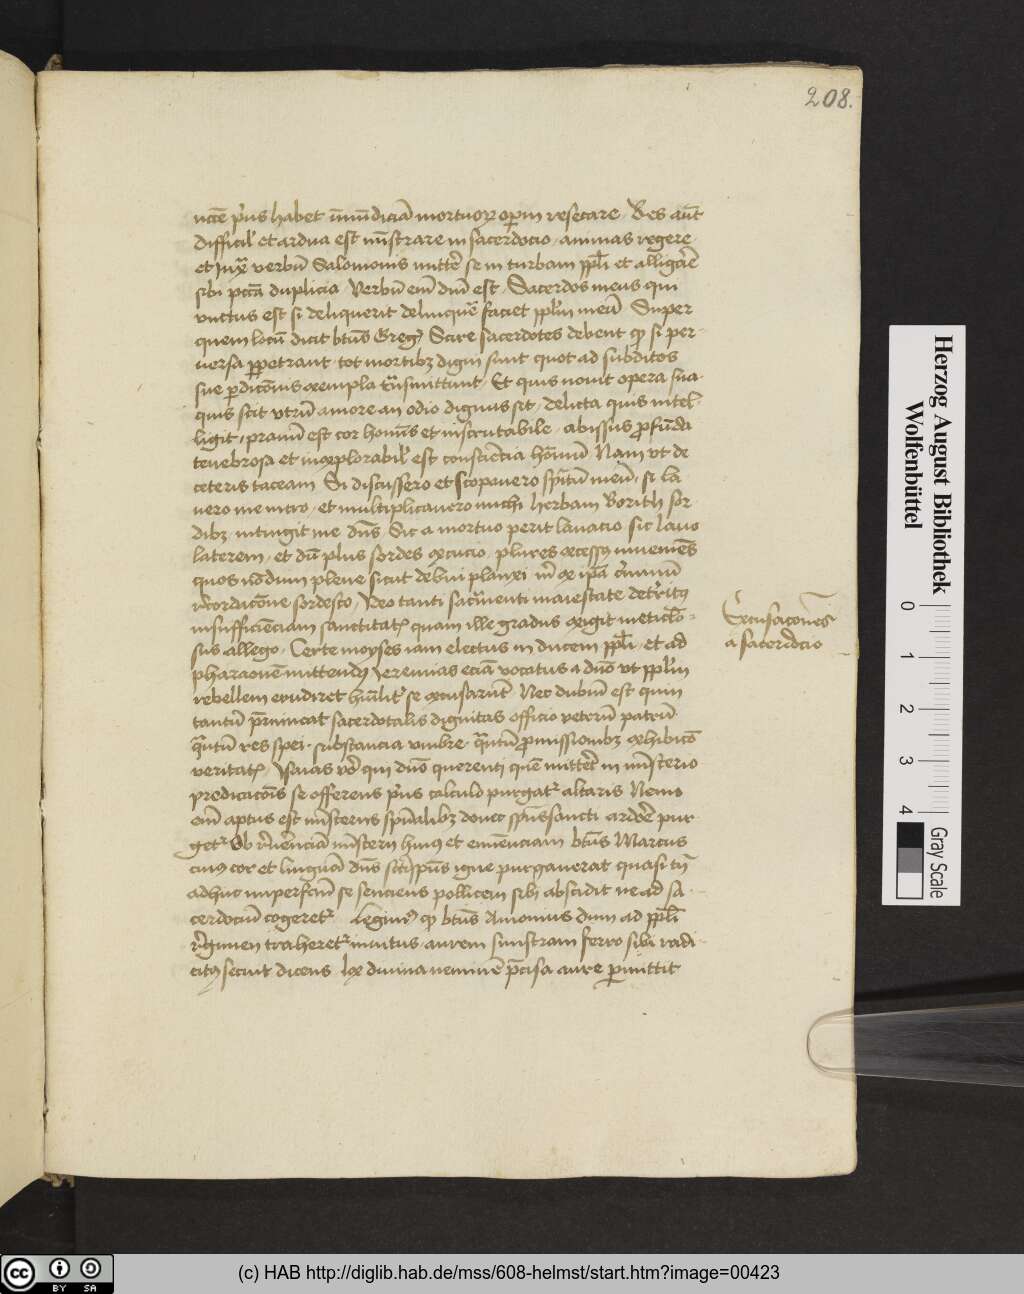 208.
nccē pri9 habet īmūdiciā mortuoꝝ opm resecare. Res aūt
difficil' et ardua est mīstrare in sacerdocio. animas regere
et juxͣ verbū Salomonis mitte͛ se in turbam ppl̄i et alliga͛e
sibi pctā duplicia Verbū em̄ dn̄i est. Sacerdos meus qui
vnctus est si deliquerit delinque͛ faciet ppl̄m meū Super
quem locū dicit bt̄us Greg9 Scire sacerdotes debent qͦ si per
uersa ꝑpetrant. tot mortibꝫ digni sunt quot ad subditos
sue ꝑdicōnis exempla tͣnsmittunt. Et quis nouit opera sua
quis scit vtrū amore an odio dignus sit, delicta quis intel-
ligit, prauū est cor homīs et inscrutabile. abissus ꝓfūda
tenebrosa et inexplorabil' est consciēcia hōīnū Nam vt de
ceteris taceam Si discussero et scopauero spīritū meū, si la
uero me nitro, et multiplicauero michi herbam Borith sor
dibꝫ intingit me dn̄s. Sic a mortuo perit lauacio sic lauo
laterem, et dū plus sordes excucio, plures excess9 inueniēs
quos nōdum plene sicut debui planxi īͦ ex ipā cͥminū
rͤcordacōne sordesco, Ideo tanti sacͣmenti maiestate detͤrit9
insufficiēciam sanctitatꝭ quam ille gradus exigit meticlō-
sus allego. Certe moyses iam electus in ducem ppl̄i, et ad
pharaonē mittend9 Jeremias eciā vocatus a dn̄o vt ppl̄m
rebellem erudiret hūilit͛ se excusarūt. Nec dubiū est quin
tantū p̄mineat sacerdotalis dignitas officio veterū patrū
qͣntū res spei. substancia vmbre. qͣntū ꝓmissionibꝫ exhibicō
veritatꝭ. Isaias vͦ qui dn̄o querenti quē mitte͛t in mīsterio
predicacōis se offerens pri9 calculo purgat͛ altaris Nemo
em̄ aptus est mīsteriis spūalibꝫ donec spūssancti ardoͤe pur
get͛ Ob rͤuerēciā mīsterii hui9 et emēnciam bt̄us Marcus
cui9 cor et linguā dn̄s sct̄ispūs igne purgauerat quasi tn̄
adhuc imperfctū se senciens pollicem sibi abscidit ne ad sa
cerdociū cogeret͛ Legim9 qͦ bt̄us Amonius dum ad ppl̄i
rͤgimen traheret͛ inuitus, aurem sinistram ferro sibi radi
cit9 secuit dicens lex diuina neminē p̄cisa aure ꝑmittit
Excusacōnes
a sacerdocio
Herzog August Bibliothek
Wolfenbüttel
0 1 2 3 4
Gray Scale
cc BY SA
(c) HAB http://diglib.hab.de/mss/608-helmst/start.htm?image=00423